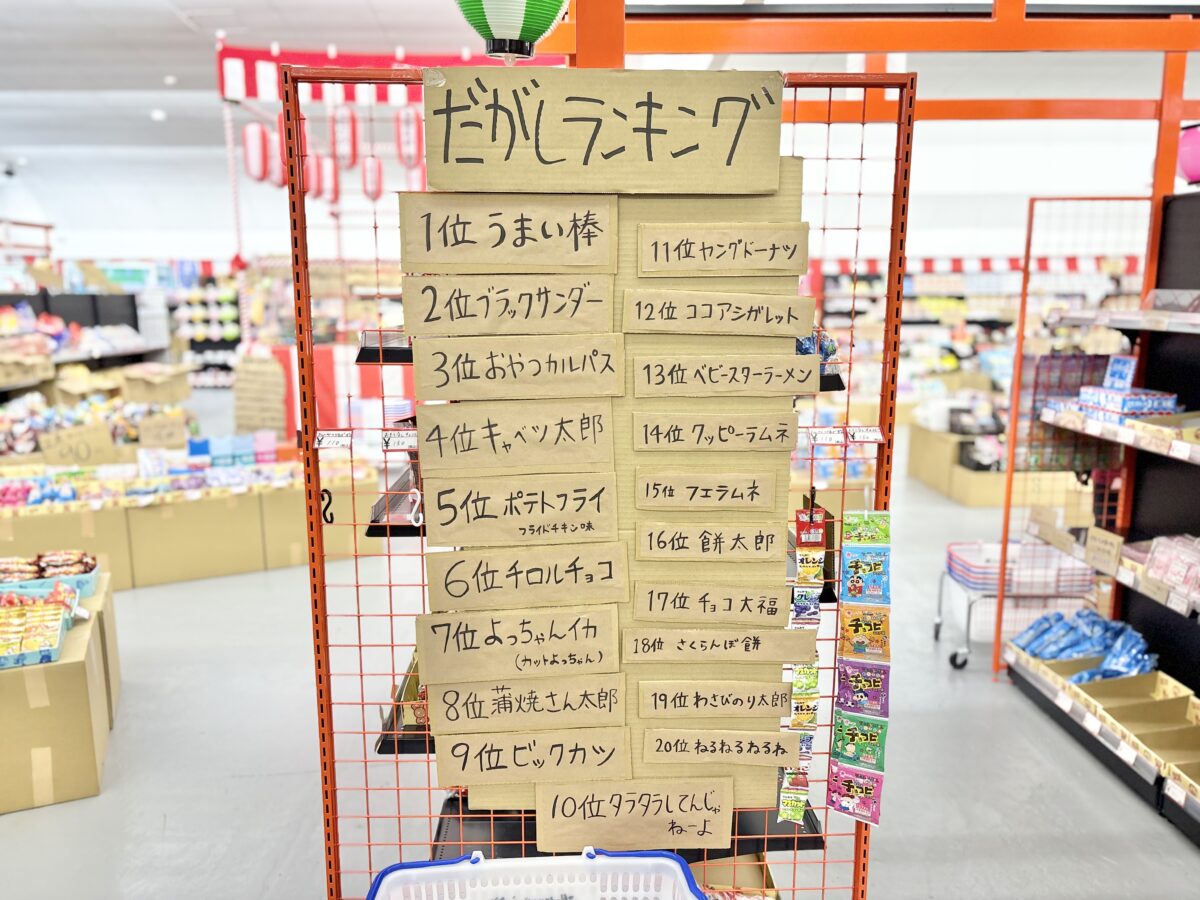 だがしランキング
1位 うまい棒
2位 ブラックサンダー
3位 おやつカルパス
4位 キャベツ太郎
5位 ポテトフライ
フライドチキン味
6位 チロルチョコ
7位 よっちゃんイカ
(カットよっちゃん)
8位 蒲焼さん太郎
9位 ビックカツ
10位 タラタラしてんじゃ
ねーよ
11位 ヤングドーナツ
12位 ココアシガレット
13位 ベビースターラーメン
14位 クッピーラムネ
15位 フエラムネ
16位 餅太郎
17位 チョコ大福
18位 さくらんぼ餅
19位 わさびのり太郎
20位 ねるねるねるね
オレンジ
オレンジ
チョコビ
チョコビ
チョコビ
チョコビ
チョコビ